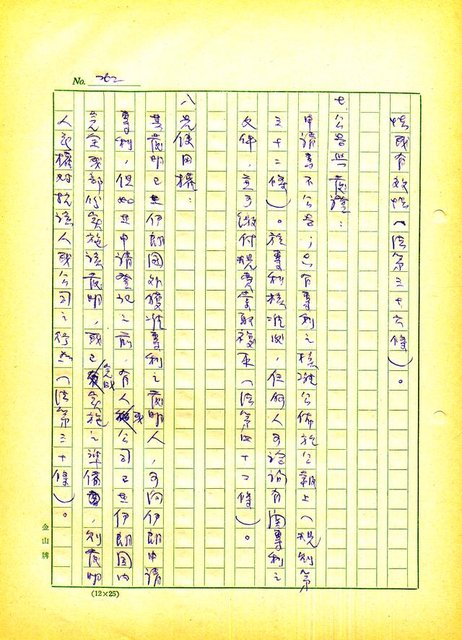 No. 262
性或有效性（法第三十六條）。
七、公告與閱證：
申請書不公告；只有專利之核准公佈於公報上（規則第
三十二條）。於專利核准後，任何人可洽詢有關專利之
文件，並可繳付規費索取複本（法第四十二條）。
八、先使用權：
某發明已在伊朗國外獲准專利之發明人，可向伊朗申請
專利，但如在申請登記之前，有人或公司已在伊朗國內
完全或部份實施該發明，或已完成實施之準備，則發明
人之權對抗該人或公司之行為（法第三十條）。
金山牌
(12×25)